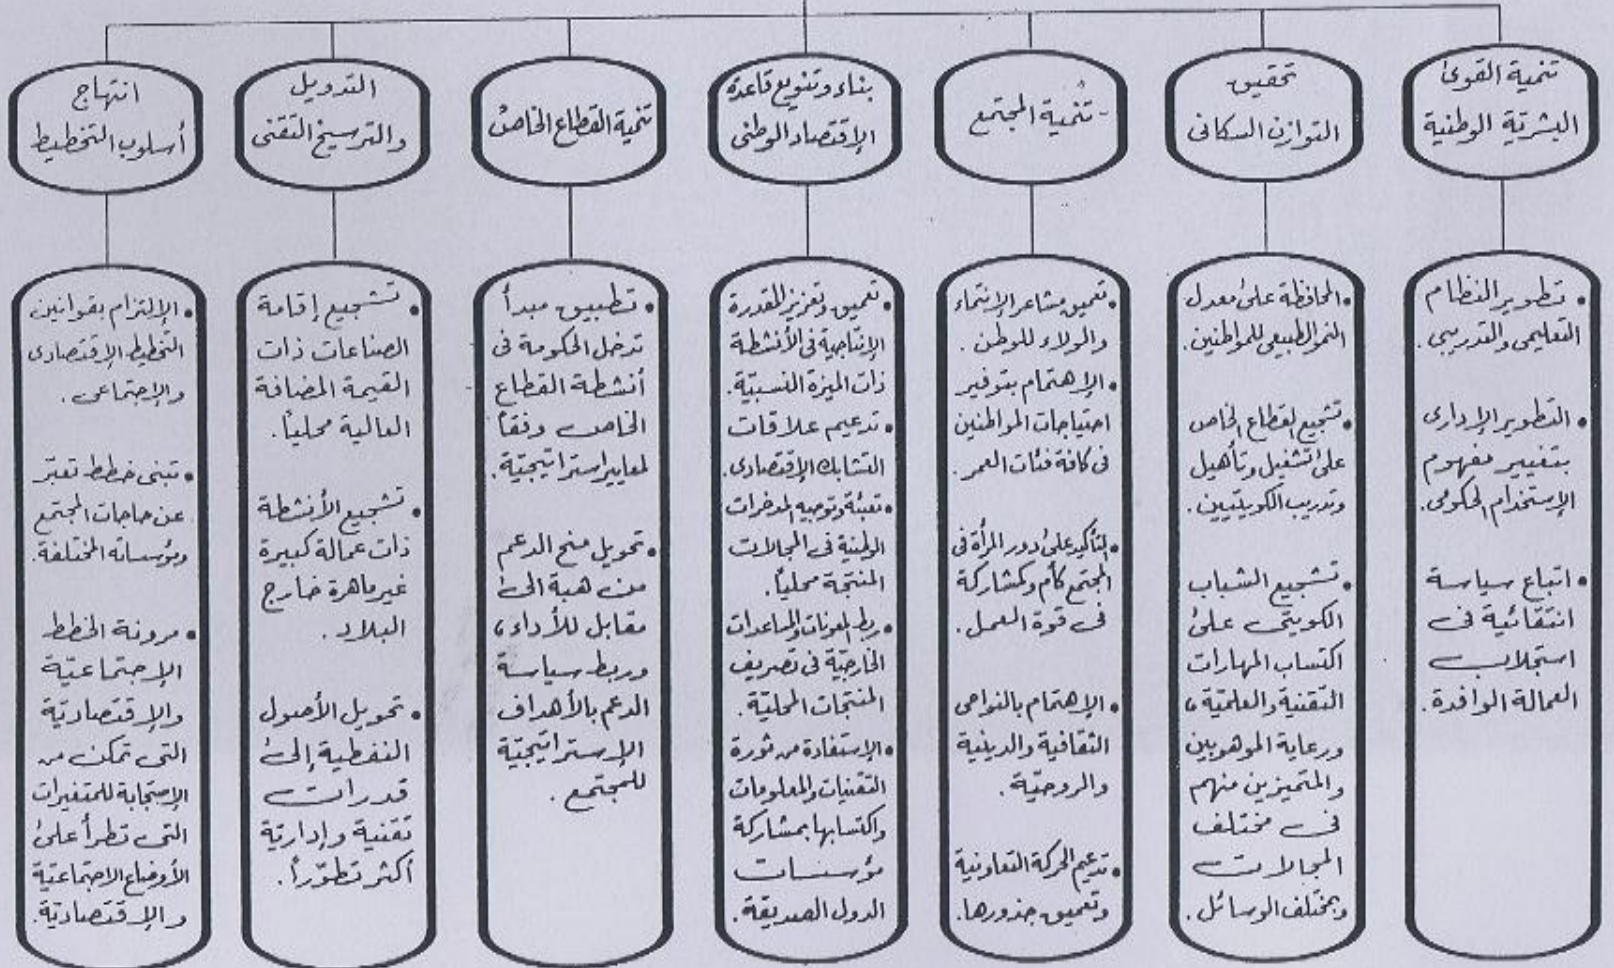 تنمية القوى
البشرية الوطنية
تحقيق
التوازن السكانى
- تنمية المجتمع
بناء وتنويع قاعدة
الإقتصاد الوطنى
تنمية القطاع الخاص
التدويل
والترسيخ التقنى
انتهاج
أسلوب التخطيط
• تطوير النظام
التعليمى والتدريبى.
• التطوير الإدارى
بتغيير مفهوم
الإستخدام الحكومى.
• اتباع سياسة
انتقائية فى
استجلاب
العمالة الوافدة.
• المحافظة على معدل
النمو الطبيعى للمواطنين.
• تشجيع القطاع الخاص
على تشغيل وتأهيل
وتدريب الكويتيين.
• تشجيع الشباب
الكويتى على
اكتساب المهارات
التقنية والعلمية،
ورعاية الموهوبين
والمتميزين منهم
فى مختلف
المجالات
وبمختلف الوسائل.
• تعميق مشاعر الإنتماء
والولاء للوطن.
• الإهتمام بتوفير
احتياجات المواطنين
فى كافة فئات العمر.
• التأكيد على دور المرأة فى
المجتمع كأم وكمشاركة
فى قوة العمل.
• الإهتمام بالنواحى
الثقافية والدينية
والروحيّة.
• تدعيم الحركة التعاونية
وتعميق جذورها.
• تعميق وتعزيز المقدرة
الإنتاجية فى الأنشطة
ذات الميزة النسبيّة.
• تدعيم علاقات
التشابك الإقتصادى.
• تعبئة وتوجيه المدخرات
الوطنية فى المجالات
المنتجة محلياً.
• ربط المعونات والمساعدات
الخارجيّة فى تصريف
المنتجات المحليّة.
• الإستفادة من ثورة
التقنيات والمعلومات
واكتسابها بمشاركة
مؤسسات
الدول الصديقة.
• تطبيق مبدأ
تدخل الحكومة فى
أنشطة القطاع
الخاص وفقاً
لمعايير استراتيجيّة.
• تحويل منح الدعم
من هبة الى
مقابل للأداء،
وربط سياسة
الدعم بالأهداف
الإستراتيجيّة
للمجتمع.
• تشجيع إقامة
الصناعات ذات
القيمة المضافة
العالية محلياً.
• تشجيع الأنشطة
ذات عمالة كبيرة
غير ماهرة خارج
البلاد.
• تحويل الأصول
النفطية إلى
قدرات
تقنية وإداريّة
أكثر تطوّراً.
• الإلتزام بقوانين
التخطيط الإقتصادى
والإجتماعى.
• تبنى خطط تعبّر
عن حاجات المجتمع
ومؤسساته المختلفة.
• مرونة الخطط
الإجتماعيّة
والإقتصاديّة
التى تمكن من
الإستجابة للمتغيرات
التى تطرأ على
الأوضاع الاجتماعيّة
والإقتصاديّة.